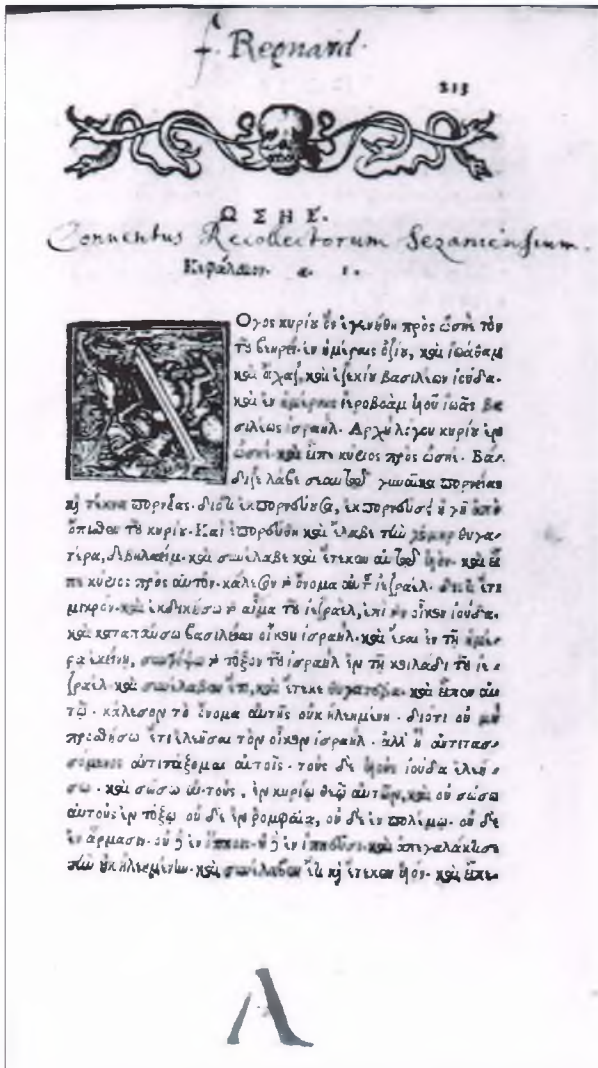 f. Regnard.
213
ΩΣΗΕ.
Conuentus Recollectorum Sezaniensium.
Κεφάλαιον. α. 1.
Λ Ογος κυρίου ὃν ἐγενήθη πρὸς ὡσηὲ τὸν
τοῦ βεηρεί. ἐν ἡμέραις ὀζίου, καὶ ἰωάθαμ
καὶ ἄχαζ, καὶ ἐζεκίου βασιλέων ἰούδα.
καὶ ἐν ἡμέραις ἱεροβοὰμ ἱοῦ ἰωᾶς βα
σιλέως ἰσραήλ. Αρχὴ λόγου κυρίου ἐν
ὡσηὲ. καὶ εἶπε κύριος πρὸς ὡσηέ. Βάδ
διζε λάβε σεαυτῷ γυναῖκα πορνείας
καὶ τέκνα πορνείας. διότι ἐκπορνεύουσα, ἐκπορνεύσει ἡ γῆ ἀπὸ
ὄπισθεν τοῦ κυρίου. Καὶ ἐπορεύθη καὶ ἔλαβε τὴν γόμερ θυγα-
τέρα, δεβηλαείμ. καὶ συνέλαβε καὶ ἔτεκεν αὐτῷ ἱόν. καὶ εἶ
πε κύριος πρὸς αὐτόν. κάλεσον τὸ ὄνομα αὐτοῦ ἰεζραέλ. διότι ἔτι
μικρόν. καὶ ἐκδικήσω τὸ αἷμα τοῦ ἰεζραέλ, ἐπὶ τὸν οἶκον ἰούδα.
καὶ καταπαύσω βασιλείαν οἴκου ἰσραήλ. καὶ ἔσαι ἐν τῇ ἡμέ-
ρᾳ ἐκείνῃ, συντρίψω τὸ τόξον τοῦ ἰσραήλ ἐν τῇ κοιλάδι τοῦ ἰε-
ζραέλ. καὶ συνέλαβεν ἔτι, καὶ ἔτεκε θυγατέρα. καὶ εἶπεν αὐ
τῷ. κάλεσον τὸ ὄνομα αὐτῆς οὐκ ἠλεημένη. διότι οὐ μὴ
προσθήσω ἔτι ἐλεῆσαι τὸν οἶκον ἰσραήλ. ἀλλ’ ἢ ἀντιτασ-
σόμενος ἀντιτάξομαι αὐτοῖς. τοὺς δὲ ἱοὺς ἰούδα ἐλεή-
σω. καὶ σώσω αὐτοὺς, ἐν κυρίῳ θεῷ αὐτῶν, καὶ οὐ σώσω
αὐτοὺς ἐν τόξῳ οὐ δὲ ἐν ῥομφαίᾳ, οὐ δὲ ἐν πολέμῳ. οὐ δὲ
ἐν ἅρμασιν. οὐ δὲ ἐν ἵπποις. οὐ δὲ ἐν ἱππεῦσι. καὶ ἀπεγαλάκτισε
τὴν οὐκ ἠλεημένην. καὶ συνέλαβεν ἔτι καὶ ἔτεκεν ἱόν. καὶ εἶπε.
Λ